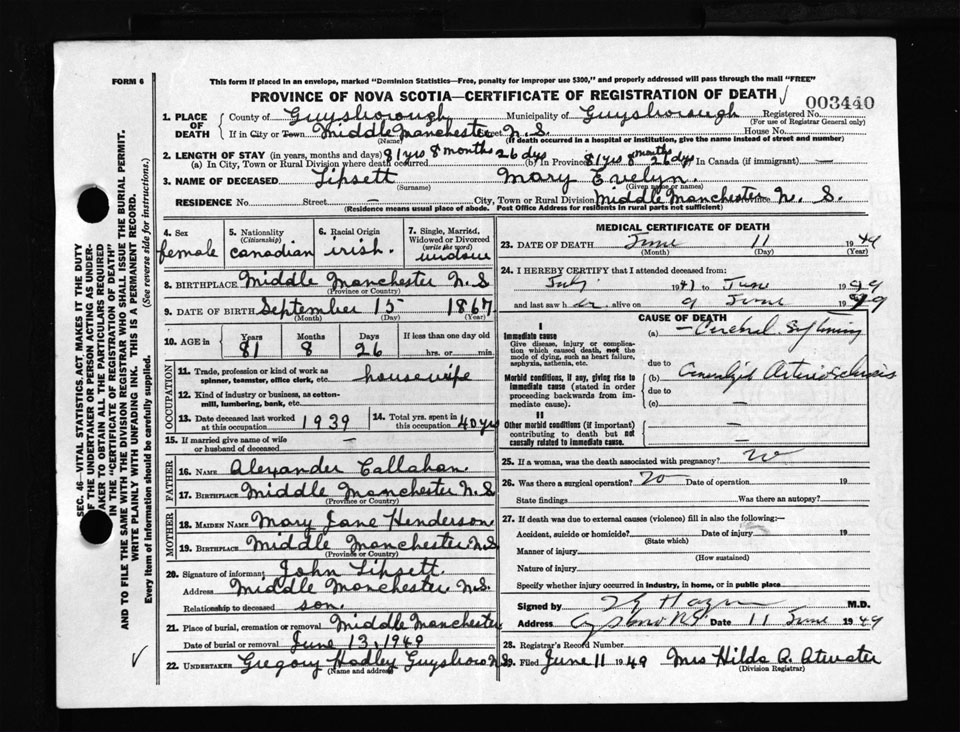 FORM 6
This form if placed in an envelope, marked "Dominion Statistics—Free, penalty for improper use $300," and properly addressed will pass through the mail "FREE"
PROVINCE OF NOVA SCOTIA—CERTIFICATE OF REGISTRATION OF DEATH
003440
1. PLACE OF DEATH County of Guysborough Municipality of Guysborough Registered No.
(For use of Registrar General only)
If in City or Town Middle Manchester Street N.S. House No.
(Name) (If death occurred in a hospital or institution, give the name instead of street and number)
2. LENGTH OF STAY (in years, months and days) 81 yrs 8 months 26 dys
(a) In City, Town or Rural Division where death occurred (b) In Province 81 yrs 8 months 26 dys In Canada (if immigrant) —
3. NAME OF DECEASED Lipsett Mary Evelyn.
(Surname) (Given name or names)
RESIDENCE No. Street — City, Town or Rural Division Middle Manchester Province N. S.
(Residence means usual place of abode. Post Office Address for residents in rural parts not sufficient)
4. Sex female
5. Nationality (Citizenship) canadian
6. Racial Origin irish.
7. Single, Married, Widowed or Divorced (write the word) widow
8. BIRTHPLACE Middle Manchester N.S
(Province or Country)
9. DATE OF BIRTH September 15 1867
(Month) (Day) (Year)
10. AGE in Years Months Days If less than one day old
81 8 26 hrs. or min.
OCCUPATION
11. Trade, profession or kind of work as spinner, teamster, office clerk, etc. housewife
12. Kind of industry or business, as cotton-mill, lumbering, bank, etc.
13. Date deceased last worked at this occupation 1939
14. Total yrs. spent in this occupation 40 yrs
15. If married give name of wife or husband of deceased —
FATHER
16. NAME Alexander Callahan.
17. BIRTHPLACE Middle Manchester N.S
(Province or Country)
MOTHER
18. MAIDEN NAME Mary Jane Henderson
19. BIRTHPLACE Middle Manchester N.S
(Province or Country)
20. Signature of informant John Lipsett.
Address Middle Manchester N.S.
Relationship to deceased son.
21. Place of burial, cremation or removal Middle Manchester
Date of burial or removal June 13, 1949
22. UNDERTAKER Gregory Hadley Guysboro N.S
(Name and address)
MEDICAL CERTIFICATE OF DEATH
23. DATE OF DEATH June 11 1949
(Month) (Day) (Year)
24. I HEREBY CERTIFY that I attended deceased from:
July 1941 to June 1949
and last saw h er alive on 9 June 1949
CAUSE OF DEATH
I
Immediate cause
Give disease, injury or complication which caused death, not the mode of dying, such as heart failure, asphyxia, asthenia, etc.
(a) — Cerebral Softening
due to
Morbid conditions, if any, giving rise to immediate cause (stated in order proceeding backwards from immediate cause).
(b) Generalized Arteriosclerosis
due to
(c) —
II
Other morbid conditions (if important) contributing to death but not causally related to immediate cause.
—
—
25. If a woman, was the death associated with pregnancy? No
26. Was there a surgical operation? No Date of operation 19
State findings Was there an autopsy?
27. If death was due to external causes (violence) fill in also the following:—
Accident, suicide or homicide? Date of injury 19
(State which)
Manner of injury
(How sustained)
Nature of injury
Specify whether injury occurred in industry, in home, or in public place
Signed by M.D.
Address Date 11 June 1949
28. Registrar's Record Number
29. Filed June 11 1949 Mrs Hilda A. Atwater
(Division Registrar)
SEC. 46—VITAL STATISTICS ACT MAKES IT THE DUTY
OF THE UNDERTAKER OR PERSON ACTING AS UNDER-
TAKER TO OBTAIN ALL THE PARTICULARS REQUIRED
IN THE "CERTIFICATE OF REGISTRATION OF DEATH"
AND TO FILE THE SAME WITH THE DIVISION REGISTRAR WHO SHALL ISSUE THE BURIAL PERMIT.
WRITE PLAINLY WITH UNFADING INK. THIS IS A PERMANENT RECORD.
Every item of information should be carefully supplied. (See reverse side for instructions.)